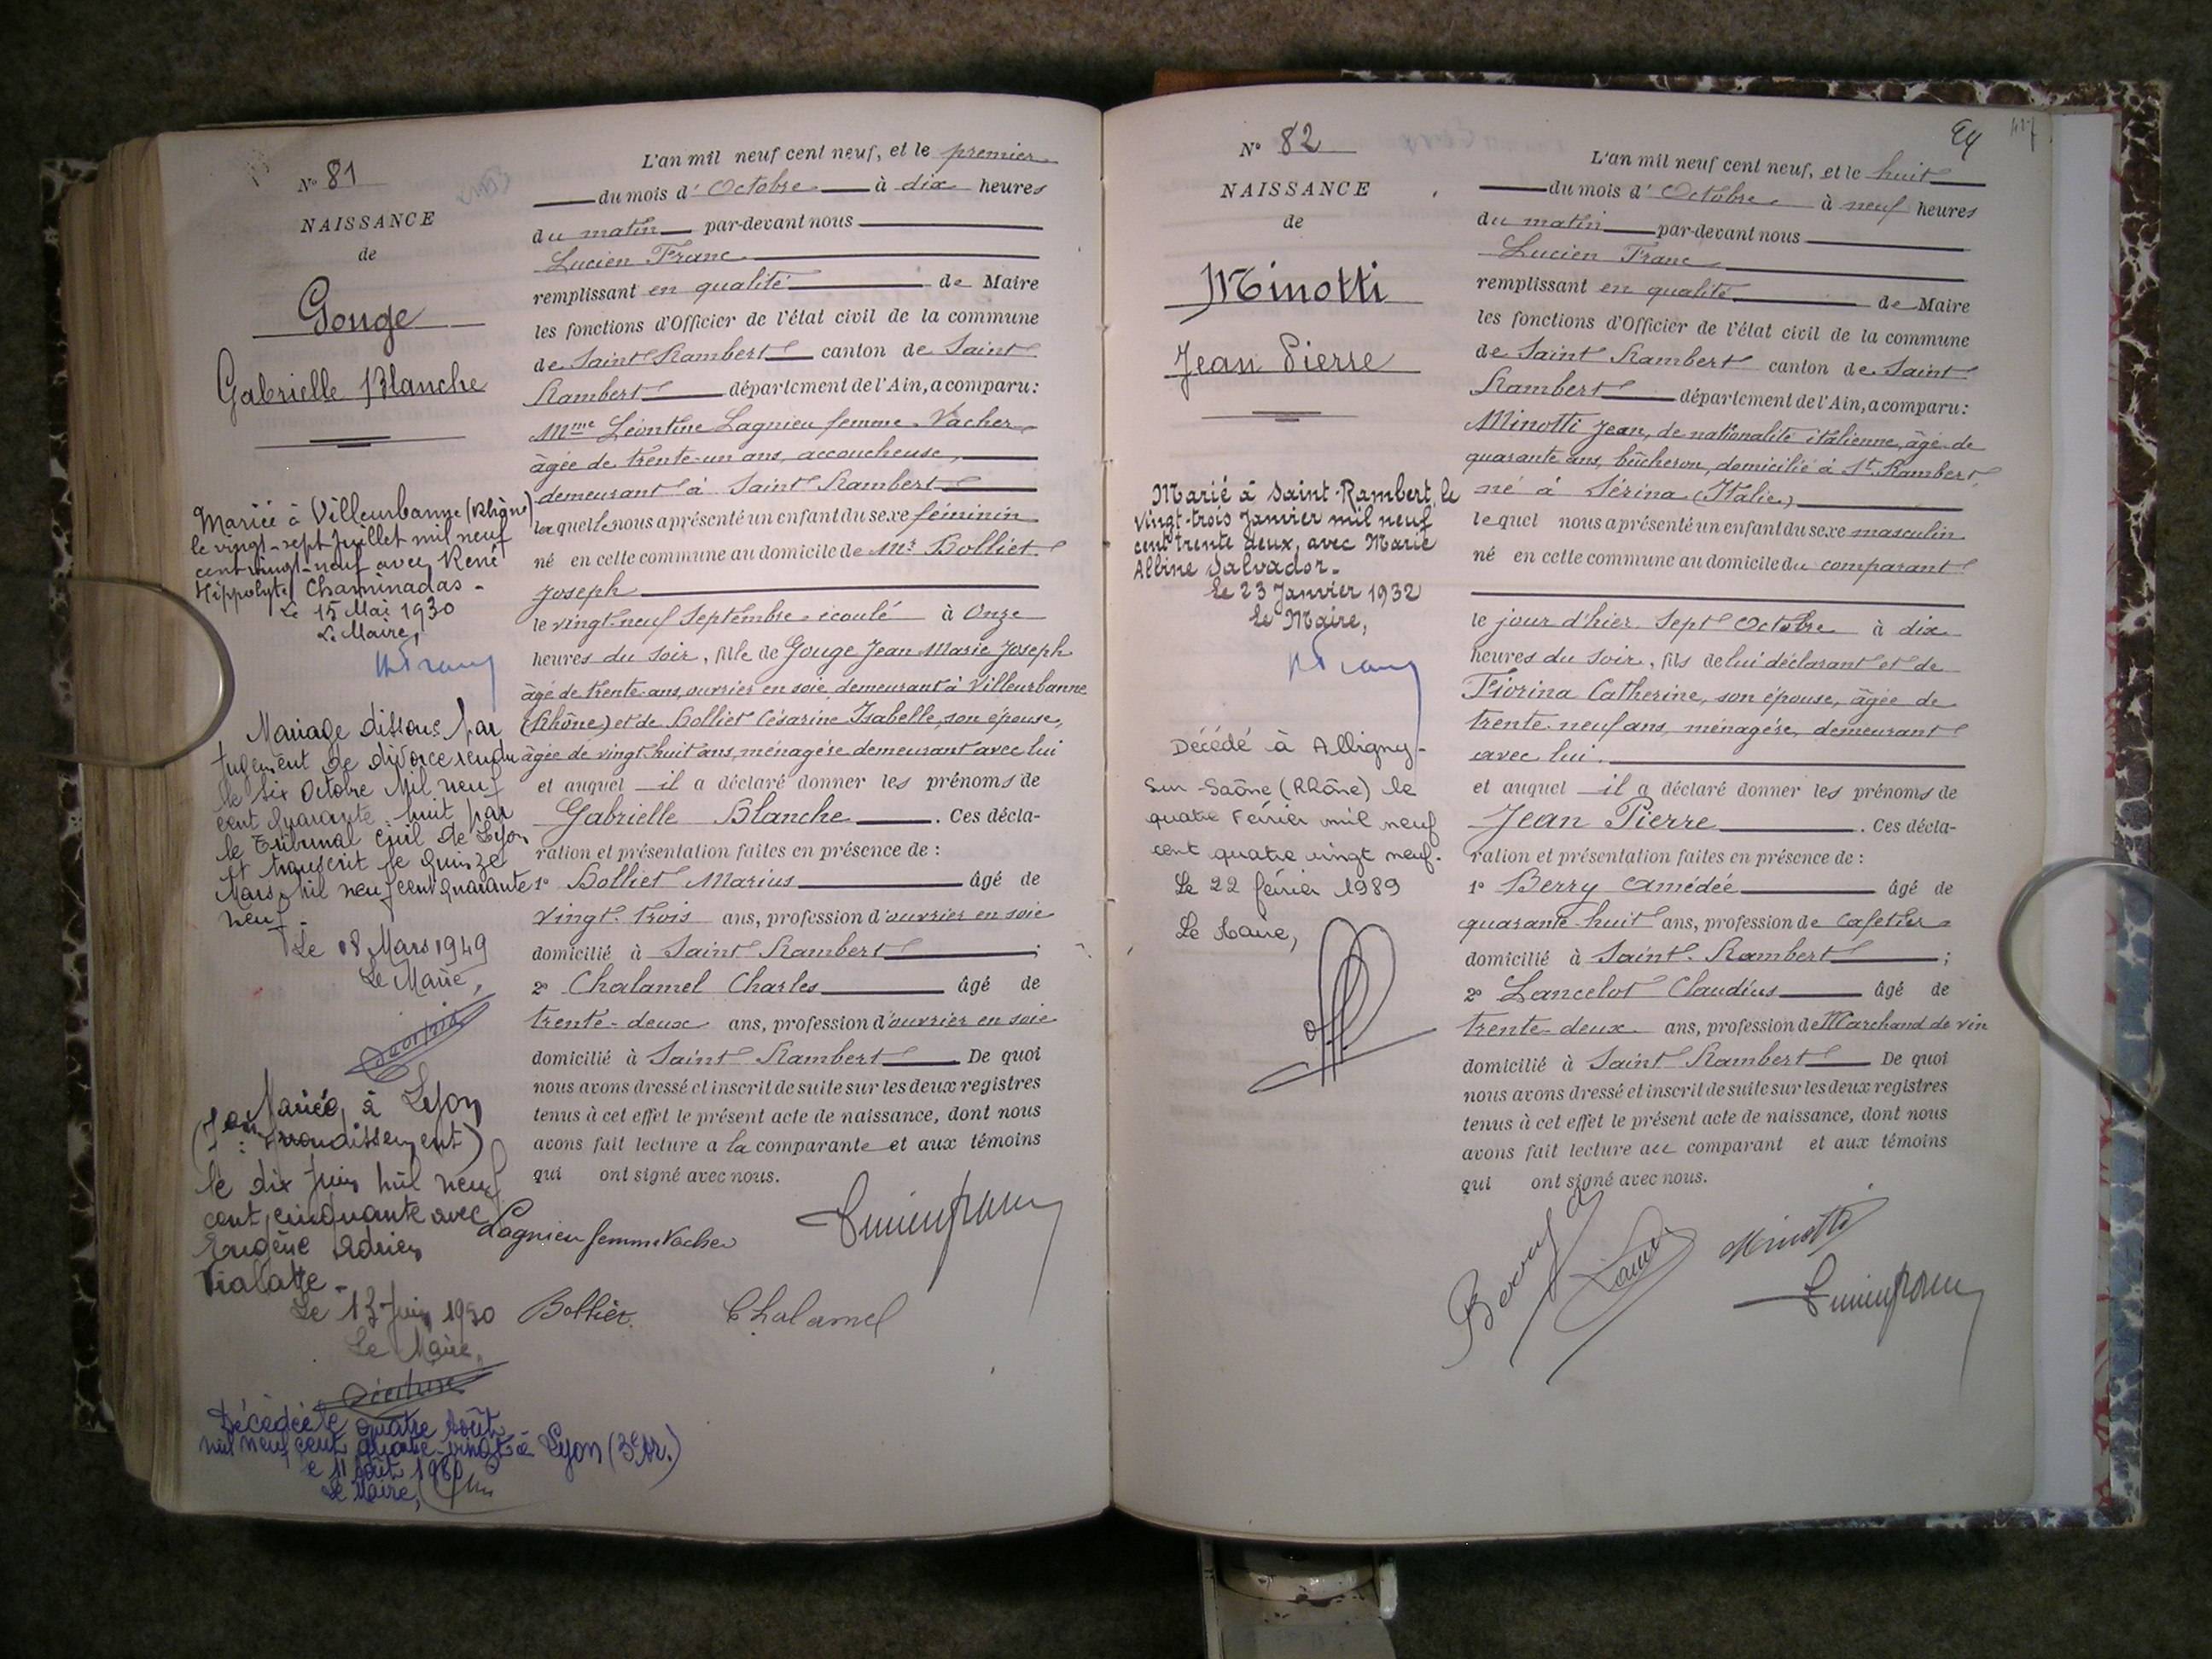 N° 81
NAISSANCE
de
Gouge
Gabrielle Blanche
Mariée à Villeurbanne (Rhône)
le vingt-sept Juillet mil neuf
cent vingt-neuf avec René
Hippolyte Chaminadas -
Le 15 Mai 1930
Le Maire,
Mariage dissous par
jugement de divorce rendu
le six Octobre Mil neuf
cent quarante huit par
le Tribunal Civil de Lyon
et transcrit le quinze
Mars Mil neuf cent quarante
neuf -
Le 18 Mars 1949
Le Maire,
Mariée à Lyon
arrondissement)
le dix Juin mil neuf
cent cinquante avec
Eugène Adrien
Vialatte -
Le 13 Juin 1950
Le Maire,
Décédée le quatre Août
mil neuf cent quatre-vingt à Lyon (3e Ar.)
le 11 Août 1980
Le Maire,
L'an mil neuf cent neuf, et le premier
du mois d' Octobre à dix heures
du matin par-devant nous
Lucien Franc
remplissant en qualité de Maire
les fonctions d'Officier de l'état civil de la commune
de Saint Rambert canton de Saint
Rambert département de l'Ain, a comparu :
Mme Léontine Lagnieu femme Vacher
âgée de trente-un ans, accoucheuse,
demeurant à Saint Rambert
laquelle nous a présenté un enfant du sexe féminin
né en cette commune au domicile de Mr Bolliet
Joseph
le vingt-neuf Septembre écoulé à Onze
heures du soir, fille de Gouge Jean Marie Joseph
âgé de trente ans, ouvrier en soie, demeurant à Villeurbanne
(Rhône) et de Bolliet Césarine Isabelle, son épouse,
âgée de vingt huit ans, ménagère demeurant avec lui
et auquel il a déclaré donner les prénoms de
Gabrielle Blanche . Ces décla-
ration et présentation faites en présence de :
1° Bolliet Marius âgé de
vingt-trois ans, profession d'ouvrier en soie
domicilié à Saint Rambert ;
2° Chalamel Charles âgé de
trente-deux ans, profession d'ouvrier en soie
domicilié à Saint Rambert De quoi
nous avons dressé et inscrit de suite sur les deux registres
tenus à cet effet le présent acte de naissance, dont nous
avons fait lecture a la comparante et aux témoins
qui ont signé avec nous.
Lagnieu femme Vacher
Lucien Franc
Bolliet
Chalamel
N° 82
NAISSANCE
de
Minotti
Jean Pierre
Marié à Saint-Rambert, le
vingt-trois Janvier mil neuf
cent trente deux, avec Marie
Albine Salvador.
Le 23 Janvier 1932
Le Maire,
Décédé à Albigny-
Sur-Saône (Rhône) le
quatre Février mil neuf
cent quatre vingt neuf.
Le 22 février 1989
Le Maire,
L'an mil neuf cent neuf, et le huit
du mois d' Octobre à neuf heures
du matin par-devant nous
Lucien Franc
remplissant en qualité de Maire
les fonctions d'Officier de l'état civil de la commune
de Saint Rambert canton de Saint
Rambert département de l'Ain, a comparu :
Minotti Jean, de nationalité italienne, âgé de
quarante ans, bûcheron, domicilié à St Rambert,
né à Sérina (Italie)
lequel nous a présenté un enfant du sexe masculin
né en cette commune au domicile du comparant
le jour d'hier Sept Octobre à dix
heures du soir, fils de lui déclarant et de
Fiorina Catherine, son épouse, âgée de
trente-neuf ans, ménagère, demeurant
avec lui.
et auquel il a déclaré donner les prénoms de
Jean Pierre . Ces décla-
ration et présentation faites en présence de :
1° Berry Amédée âgé de
quarante-huit ans, profession de Cafetier
domicilié à Saint-Rambert ;
2° Lancelot Claudius âgé de
trente-deux ans, profession de Marchand de vin
domicilié à Saint Rambert De quoi
nous avons dressé et inscrit de suite sur les deux registres
tenus à cet effet le présent acte de naissance, dont nous
avons fait lecture au comparant et aux témoins
qui ont signé avec nous.
Berry
Minotti
Lucien Franc